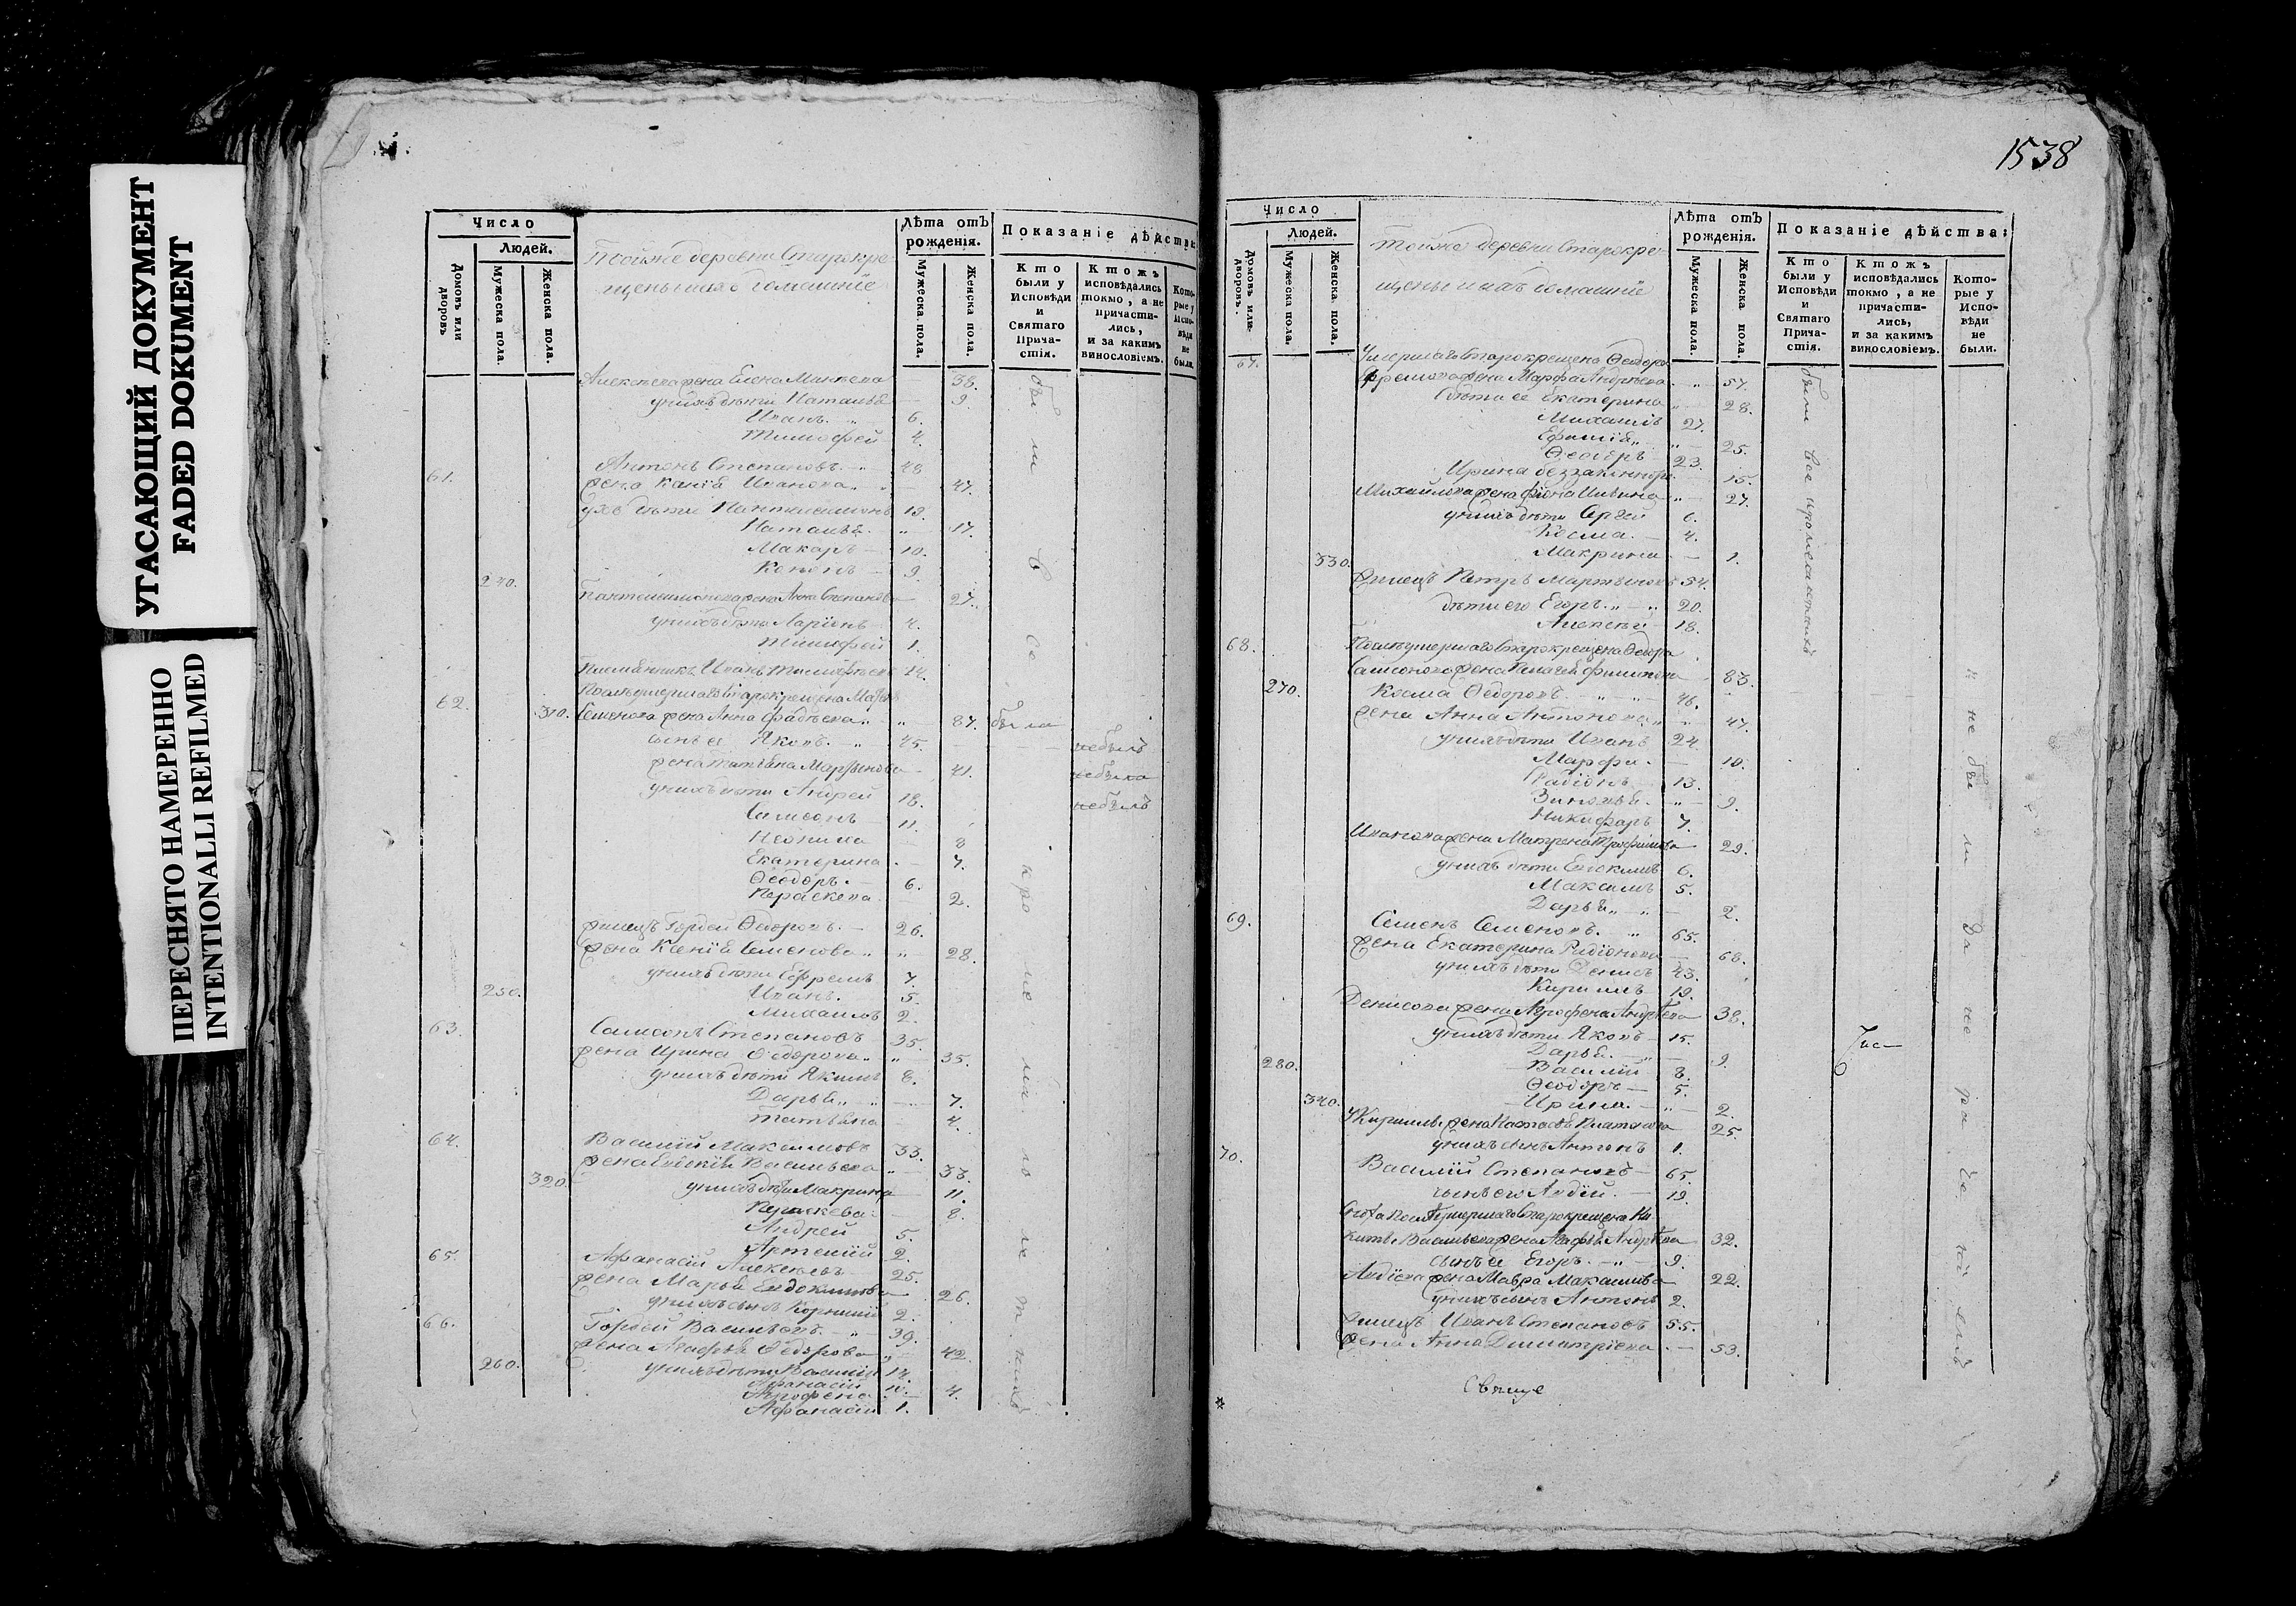 УГАСАЮЩИЙ ДОКУМЕНТ
FADED DOKUMENT
ПЕРЕСНЯТО НАМЕРЕННО
INTENTIONALLI REFILMED
Число
Людей.
Домовъ или дворовъ
Мужеска пола.
Женска пола.
Тойже деревни Старокре
щены домашние
Лѣта отъ рожденія.
Мужеска пола.
Женска пола.
Показаніе дѣйства:
Кто были у Исповѣди и Святаго Прича-стія.
Ктожъ исповѣдались токмо, а не причасти-лись, и за какимъ винословіемъ.
Кото-рые у Испо-вѣди не были.
Алексѣева жена Елена 38.
у нихъ дѣти Наталья 9.
Иванъ 6.
Тимофей 4.
61. Антонъ Степановъ 48
жена Ксенія Иванова 47.
ихъ дѣти Пантелеимонъ 19.
Наталья 17.
Макаръ 10.
Кононъ 9.
240. Пантелеимонова жена Анна Степанова 27.
у нихъ дѣти Ларіонъ 4.
Тимофей 1.
Племянникъ Иванъ Тимофѣевъ 14.
62. Послѣ умершаго Старокрещена
310. Семенова жена Анна Фадѣева 87. была
сынъ ея Яковъ 45. небылъ
жена Татьяна Мартынова 41. небыла
у нихъ дѣти Андрей 18. небылъ
Самсонъ 11.
Неонила 8
Екатерина 7.
Ѳеодоръ 6.
Параскева 2.
жилецъ Гордей Ѳедоровъ 26.
жена Ксенія Семенова 28.
у нихъ дѣти Ефремъ 7.
250. Иванъ 5.
Михаилъ 2.
63. Самсонъ Степановъ 35.
жена Ирина Ѳедорова 35.
у нихъ дѣти Якимъ 8.
Дарья 7.
Татьяна 4.
64. Василій Максимовъ 33.
жена Евдокія Васильева 33.
320. у нихъ дѣти Макрина 11.
Параскева 8.
Андрей 5.
Артемій 2.
65. Афанасій Алексѣевъ 25.
жена Марья Евдокимова 26.
у нихъ сынъ Корнилій 2.
66. Гордей Васильевъ 39.
жена Агафья Ѳедорова 42
260. у нихъ дѣти Василій 12.
Афанасій 10.
Агрофена 4.
Афанасій 1.
1538
Число
Людей.
Домовъ или дворовъ.
Мужеска пола.
Женска пола.
Тойже деревни Старокре
щены и ихъ домашніе
Лѣта отъ рожденія.
Мужеска пола.
Женска пола.
Показаніе дѣйства:
Кто были у Исповѣди и Святаго Прича-стія.
Ктожъ исповѣдались токмо, а не причасти-лись, и за какимъ винословіемъ.
Кото-рые у Испо-вѣди не были.
67. Умершаго Старокрещена Ѳеодора
Ефремова жена Марфа Андрѣева 57.
дѣти ея Екатерина 28.
Михаилъ 27.
Ефимія 25.
Ѳеодоръ 23.
Ирина 15.
Михайлова жена 27.
у нихъ дѣти Сергей 6.
Косма 4.
330. Макрина 1.
жилецъ Петръ Мартыновъ 54.
дѣти его Егоръ 20.
Алексѣй 18.
68. Послѣ умершаго Старокрещена Ѳедора
Самсонова жена Пелагея Филипова 83.
270. Косма Ѳедоровъ 46.
жена Анна Антонова 47.
у нихъ дѣти Иванъ 24.
Марфа 10.
Радіонъ 13.
Зиновья 9.
Никифоръ 7.
Иванова жена Матрена Трофимова 29.
у нихъ дѣти Евдокимъ 6.
Максимъ 5.
Дарья 2.
69. Семенъ Семеновъ 65.
жена Екатерина Радіонова 68.
у нихъ дѣти Денисъ 43.
Кирилъ 19.
Денисова жена Агрофена Андрѣева 38.
у нихъ дѣти Яковъ 15.
Дарья 9.
280. Василій 8.
Ѳеодоръ 5.
340. Ирина 2.
У Кирилы жена Наталья 25.
у нихъ сынъ Антонъ 1.
70. Василій Степановъ 65.
сынъ его Авдій 19.
Сноха Послѣ умершаго Старокрещена Ни
киты Васильева жена Агафья Андрѣева 32.
сынъ ея Егоръ 9.
Авдіева жена Мавра Максимова 22.
у нихъ сынъ Антонъ 2.
жилецъ Иванъ Степановъ 55.
жена Анна Димитріева 53.